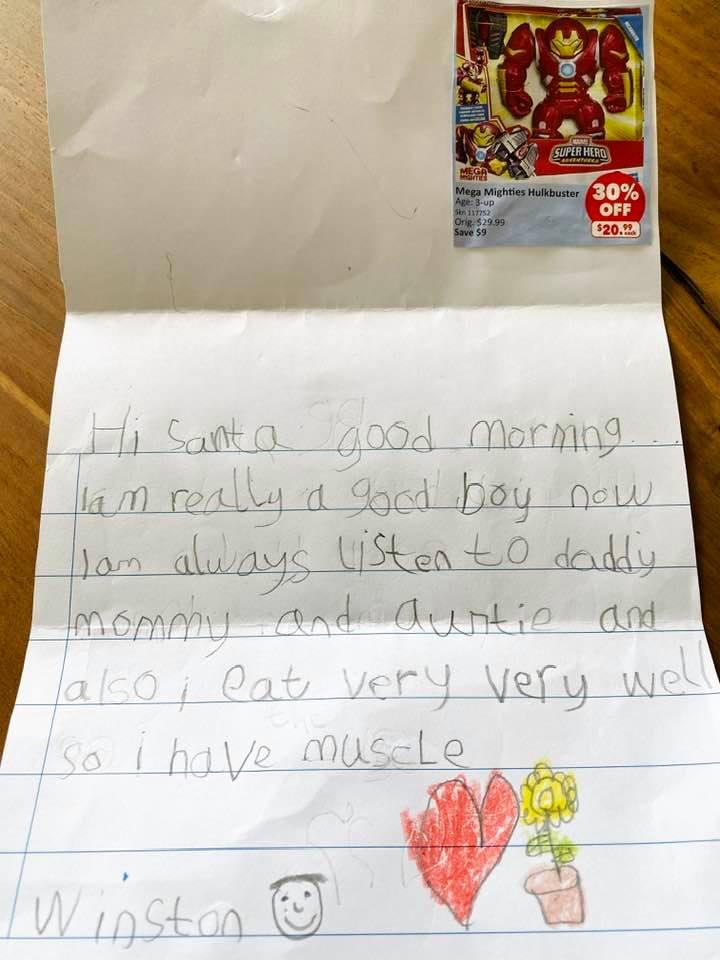 MARVEL
SUPER HERO
ADVENTURES
MEGA
MIGHTIES
Mega Mighties Hulkbuster
Age: 3-up
Skn 117752
Orig: $29.99
Save $9
30%
OFF
$20.99 each
Hi Santa good morning...
I am really a good boy now
I am always listen to daddy
mommy and auntie and
also i eat very very well
so i have muscle
Winston